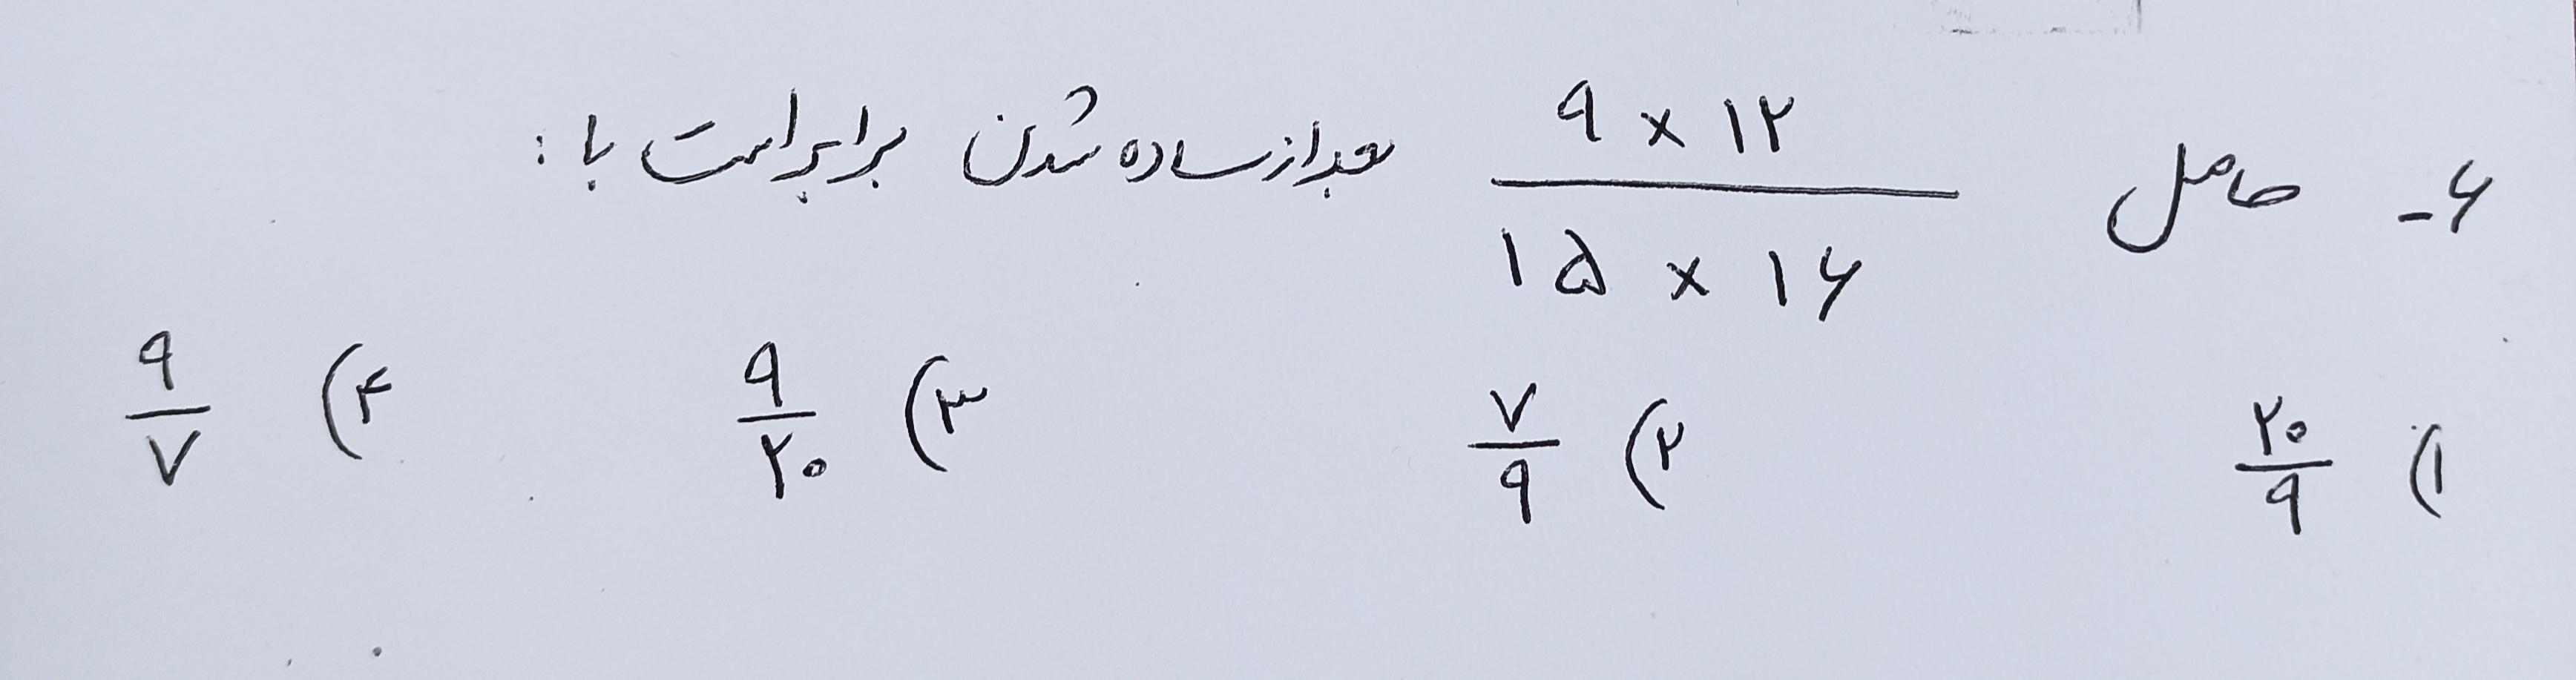 ۶- حاصل ۹ × ۱۲ / ۱۵ × ۱۶ بعد از ساده شدن برابر است با :
۱) ۲۰/۹ ۲) ۷/۹ ۳) ۹/۲۰ ۴) ۹/۷